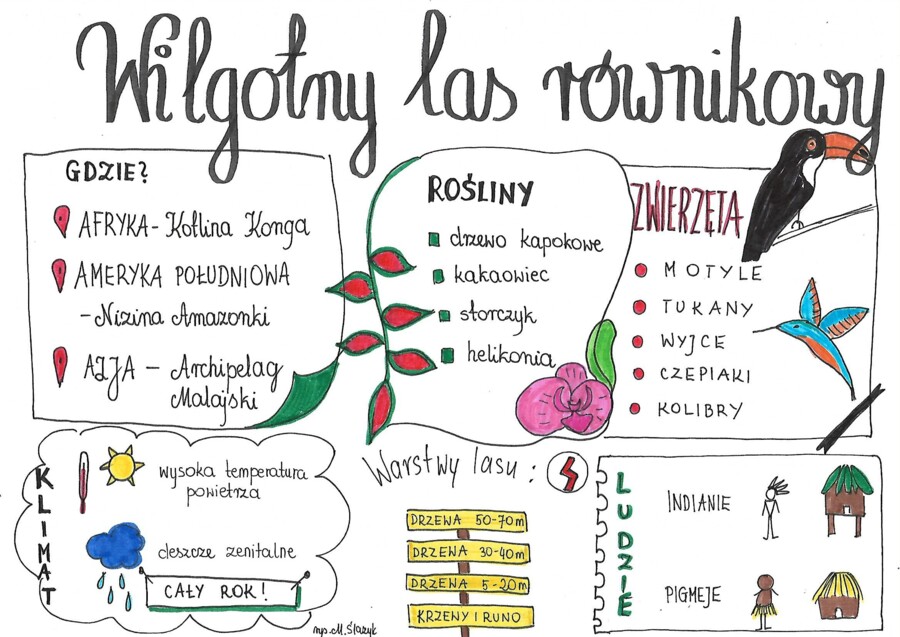 Wilgotny las równikowy
GDZIE?
AFRYKA - Kotlina Konga
AMERYKA POŁUDNIOWA
- Nizina Amazonki
AZJA - Archipelag
Malajski
ROŚLINY
drzewo kapokowe
kakaowiec
storczyk
helikonia
ZWIERZĘTA
MOTYLE
TUKANY
WYJCE
CZEPIAKI
KOLIBRY
KLIMAT
wysoka temperatura
powietrza
deszcze zenitalne
CAŁY ROK!
rys. M. Ślazyk
Warstwy lasu:
DRZEWA 50-70m
DRZEWA 30-40m
DRZEWA 5-20m
KRZEWY I RUNO
LUDZIE
INDIANIE
PIGMEJE